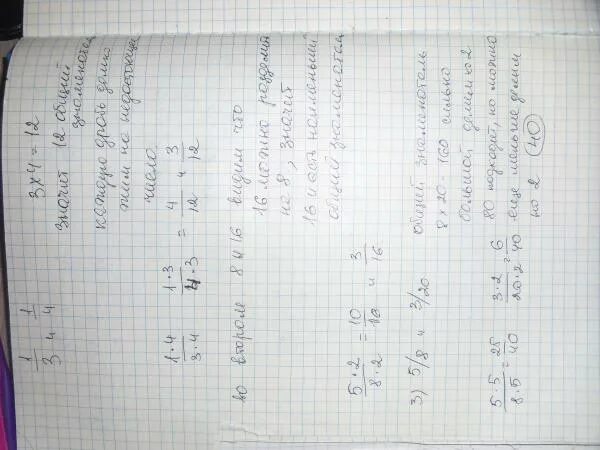 1/3 и 1/4 3 x 4 = 12
значит 12 общий
знаменатель
каждую дробь домно
жим на недостающее
число.
1·4/3·4 1·3/4·3 = 4/12 и 3/12
во втором 8 и 16 видим что
16 можно разделить
на 8, значит
16 и есть наименьший
общий знаменатель
5·2/8·2 = 10/16 и 3/16
3) 5/8 и 3/20 общий знаменатель
8 x 20 = 160 сильно
большой делим на 2
80 подходит, но можно
5·5/8·5 = 25/40 3·2/20·2 = 6/40 еще меньше делим
на 2 40